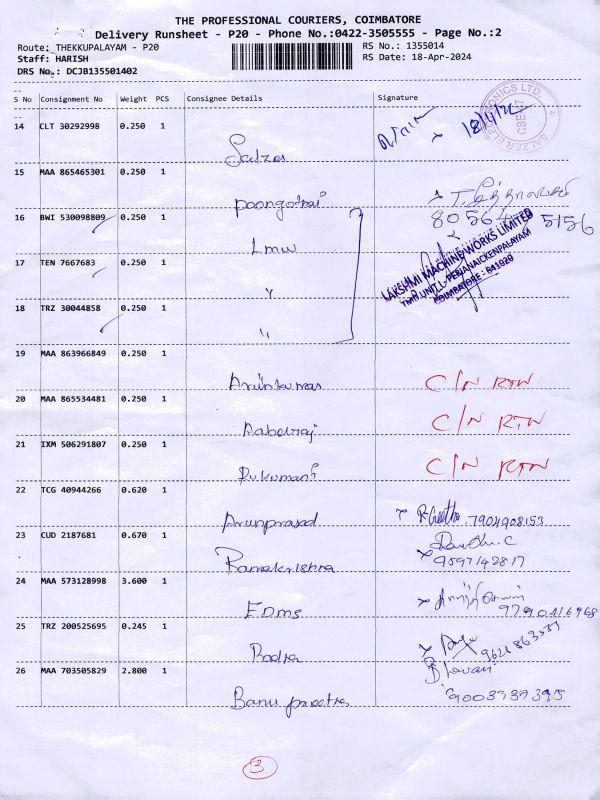 THE PROFESSIONAL COURIERS, COIMBATORE
Delivery Runsheet - P20 - Phone No.:0422-3505555 - Page No.:2
Route: THEKKUPALAYAM - P20
RS No.: 1355014
Staff: HARISH
RS Date: 18-Apr-2024
DRS No.: DCJB135501402
S No Consignment No Weight PCS Consignee Details Signature
14 CLT 30292998 0.250 1
Salzer
18/4/24
SALZER ELECTRONICS LTD.
CBE-47
15 MAA 865465301 0.250 1
Poongothai
16 BWI 530098809 0.250 1
Lmw
80564 5156
LAKSHMI MACHINE WORKS LIMITED
UNIT I - PERIANAICKENPALAYAM
COIMBATORE - 641020
17 TEN 7667683 0.250 1
"
18 TRZ 30044858 0.250 1
"
19 MAA 863966849 0.250 1
Arunkumar C/N RTN
20 MAA 865534481 0.250 1
C/N RTN
21 IXM 506291807 0.250 1
Rukumani C/N RTN
22 TCG 40944266 0.620 1
Arunprasad R-Geetha 7904908153
23 CUD 2187681 0.670 1
Ramakrishna 9597142817
24 MAA 573128998 3.600 1
EDMS 9790416968
25 TRZ 200525695 0.245 1
Bhavani
26 MAA 703505829 2.800 1
Banu preetha 9003737395
3